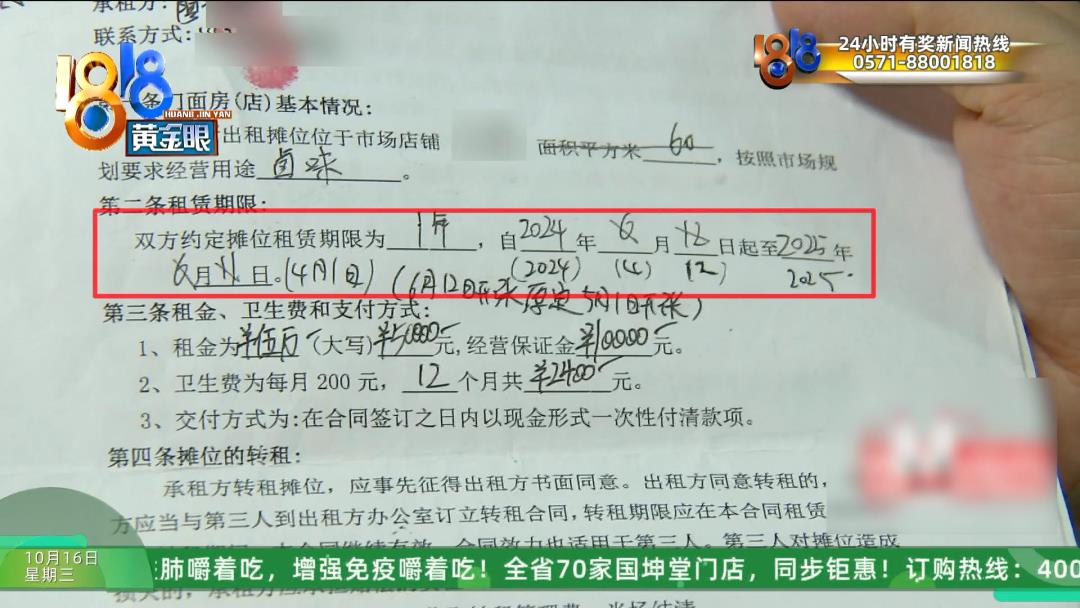 承租方:
联系方式:
1818
HUANG JIN YAN
黄金眼
24小时有奖新闻热线
0571-88001818
条门面房(店)基本情况:
出租摊位位于市场店铺 面积平方米 60 ,按照市场规
划要求经营用途 卤味 。
第二条租赁期限:
双方约定摊位租赁期限为 1年 ,自 2024 年 6 月 12 日起至 2025 年
(2024) (4) (12) 2025.
6月11日。(4月1日) (6月12日开张 原定5月1日开张)
第三条租金、卫生费和支付方式:
1、租金为 ¥伍万 (大写) ¥50000 元,经营保证金 ¥10000 元。
2、卫生费为每月 200 元, 12 个月共 ¥2400 元。
3、交付方式为:在合同签订之日内以现金形式一次性付清款项。
第四条摊位的转租:
承租方转租摊位,应事先征得出租方书面同意。出租方同意转租的,
方应当与第三人到出租方办公室订立转租合同,转租期限应在本合同租赁
合同继续有效,合同效力也适用于第三人。第三人对摊位造成
10月16日
星期三
肺嚼着吃,增强免疫嚼着吃!全省70家国坤堂门店,同步钜惠!订购热线:400